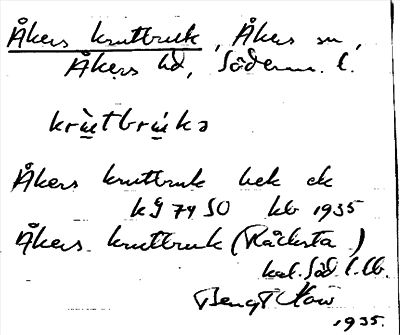 Åkers krutbruk, Åkers sn,
Åkers hd, Söderm. l.
krùtbrúkə
Åkers krutbruk hek ek
kJ 74 SO kb 1935
Åkers krutbruk (Råcksta)
kal. Söd. l.
Bengt
1935.